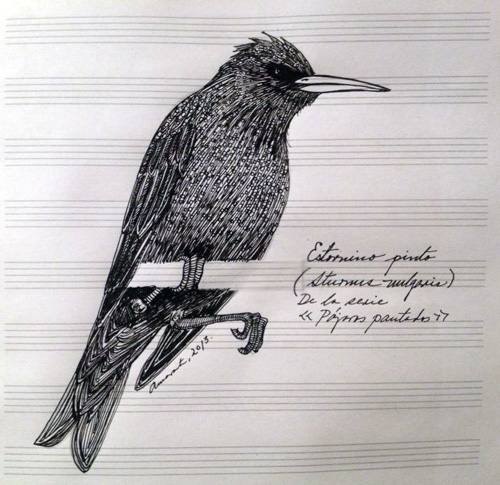 Estornino pinto
(Sturnus vulgaris)
De la serie
«Pájaros pautados»
2013.